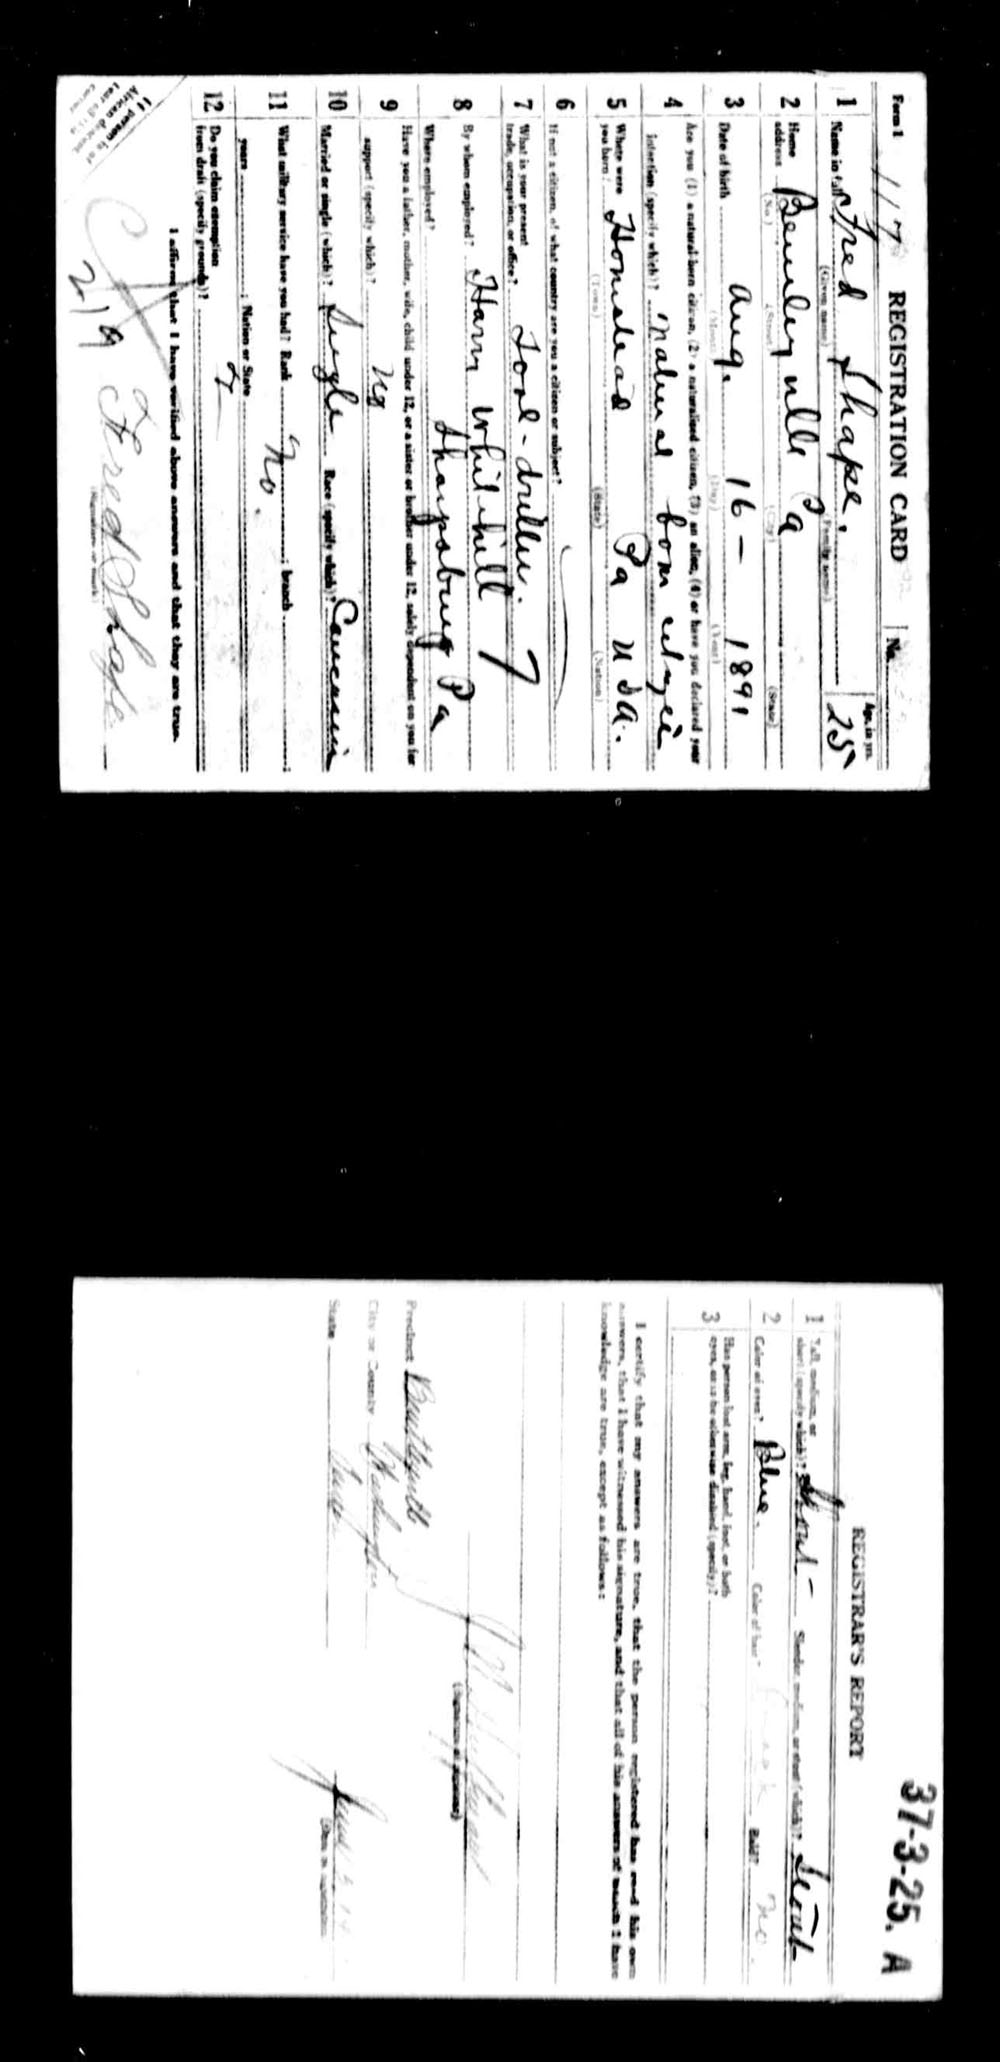 Form 1
REGISTRATION CARD
No.
1 Name in full Fred Shape. Age, in yrs. 25
(Given name) (Family name)
2 Home address Bentley ville Pa
(No.) (Street) (City) (State)
3 Date of birth Aug. 16 — 1891
(Month) (Day) (Year)
4 Are you (1) a natural-born citizen, (2) a naturalized citizen, (3) an alien, (4) or have you declared your
intention (specify which)? natural born
5 Where were you born? Homestead Pa USA.
(Town) (State) (Nation)
6 If not a citizen, of what country are you a citizen or subject?
7 What is your present trade, occupation, or office? Tool-driller. 7
8 By whom employed? Harry Whitehill
Where employed? Sharpsburg Pa
9 Have you a father, mother, wife, child under 12, or a sister or brother under 12, solely dependent on you for
support (specify which)? no
10 Married or single (which)? Single Race (specify which)? Caucasian
11 What military service have you had? Rank No. ; branch ;
years ; Nation or State
12 Do you claim exemption from draft (specify grounds)?
I affirm that I have verified above answers and that they are true.
Fred Shape
(Signature or mark)
If person is of African descent, tear off this corner
219
37-3-25. A
REGISTRAR'S REPORT
1 Tall, medium, or short (specify which)? Short — Slender, medium, or stout (which)? Stout
2 Color of eyes? Blue. Color of hair? Bald? No.
3 Has person lost arm, leg, hand, foot, or both
eyes, or is he otherwise disabled (specify)?
I certify that my answers are true, that the person registered has read his own
answers, that I have witnessed his signature, and that all of his answers of which I have
knowledge are true, except as follows:
(Signature of registrar)
Precinct
City or County Washington
State
June 5
(Date of registration)